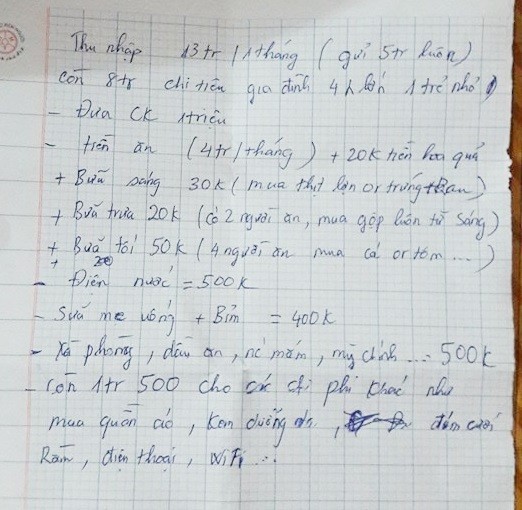 Thu nhập 13tr / 1tháng ( gửi 5tr luôn)
còn 8tr chi tiêu gia đình 4 lớn 1 trẻ nhỏ
- Đưa CK 1triệu
- tiền ăn (4tr/tháng) + 20K tiền hoa quả
+ Bữa sáng 30K ( mua thịt lợn or trứng + Rau)
+ Bữa trưa 20K (có 2 người ăn, mua gộp luôn từ sáng)
+ Bữa tối 50K ( 4 người ăn mua cá or tôm ...)
+
- Điện nước = 500K
- Sữa mẹ uống + Bỉm = 400K
- Xà phòng, dầu ăn, nc mắm, mỳ chính ... 500K
- Còn 1tr 500 cho các chi phí khác như
mua quần áo, kem dưỡng da, đám cưới
Rằm, điện thoại, wifi ...